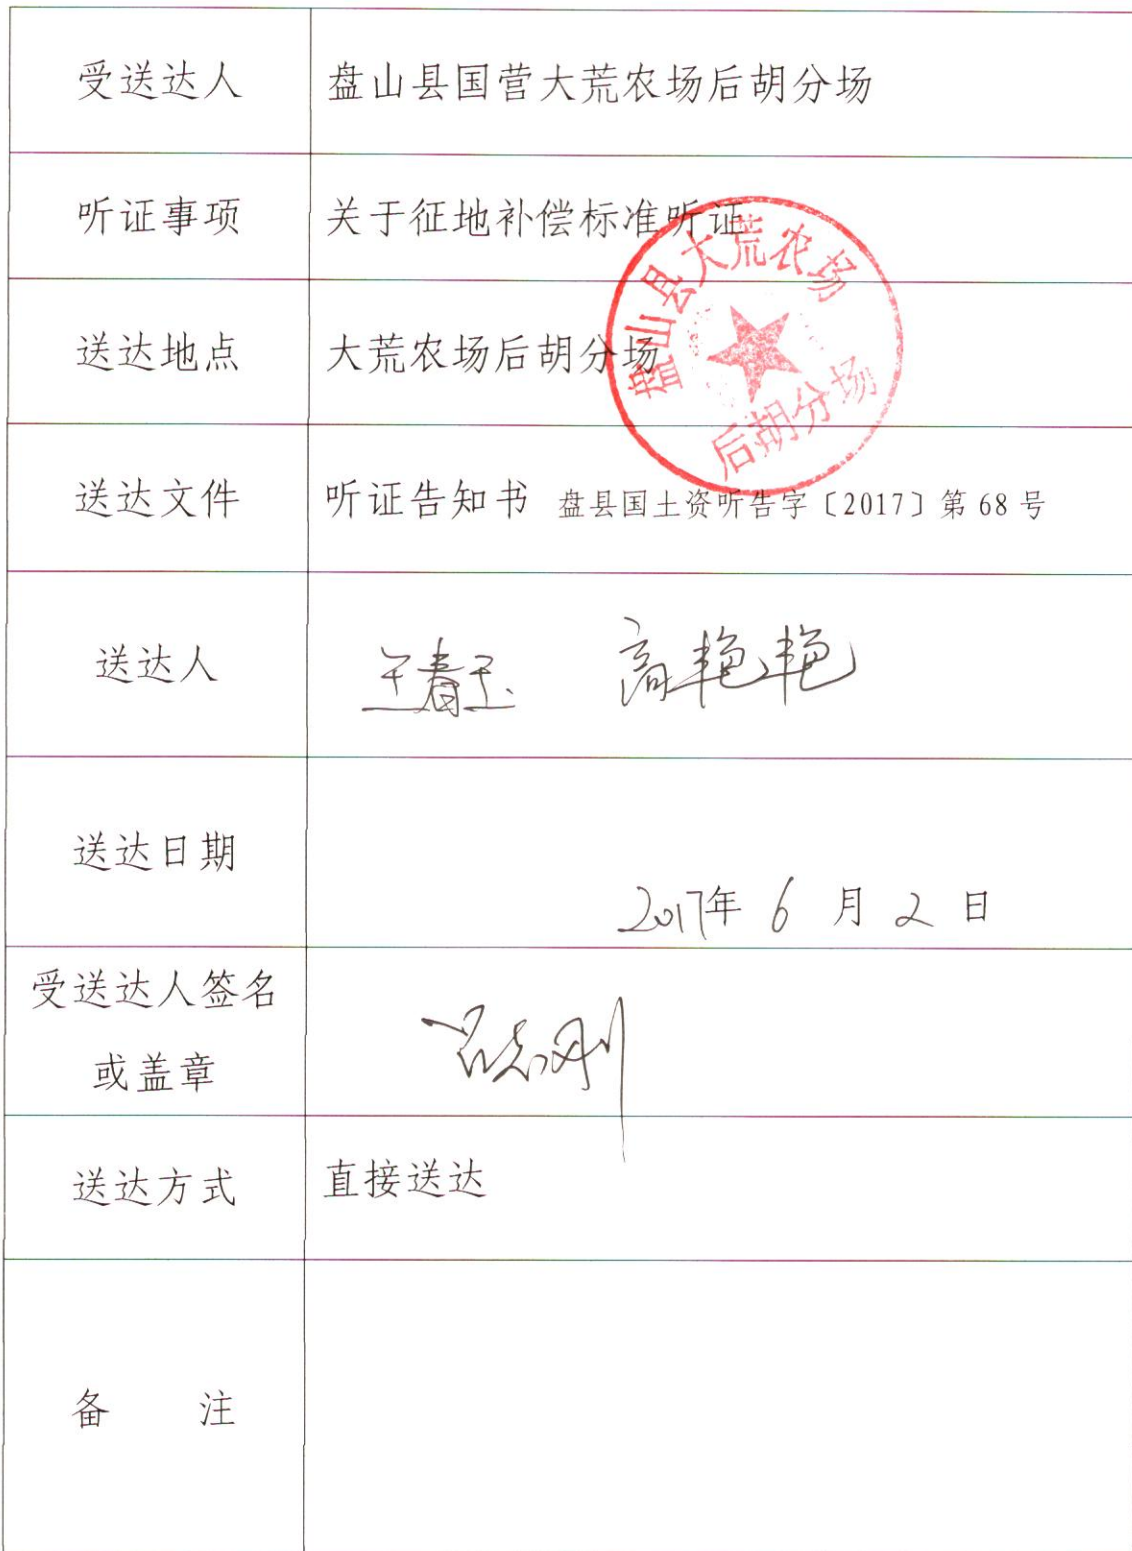 受送达人 盘山县国营大荒农场后胡分场
听证事项 关于征地补偿标准听证
盘山县大荒农场
后胡分场
送达地点 大荒农场后胡分场
送达文件 听证告知书 盘县国土资听告字〔2017〕第 68 号
送达人 王春玉 高艳艳
送达日期
2017年 6 月 2 日
受送达人签名
或盖章
送达方式 直接送达
备 注